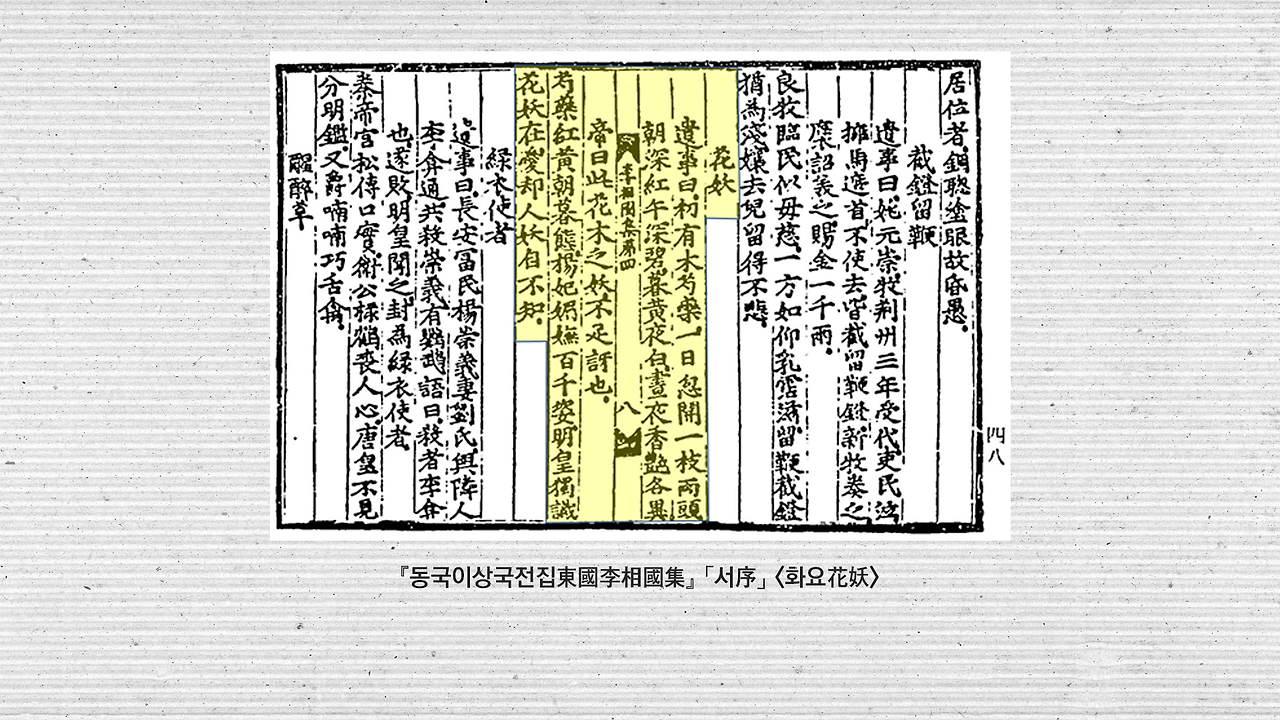 居位者鋼聦塗眼故昏愚。
截鐙留鞭
遺事曰姚元崇牧荊州三年受代吏民泣
擁馬遮首不使去皆截留鞭鐙新牧奏之
褒詔美之賜金一千兩。
良牧臨民似毋慈一方如仰乳霑濡留鞭截鐙
猶為淺孃去兒留得不悲。
花妖
遺事曰初有木芍藥一日忽開一枝兩頭
朝深紅午深碧暮黃夜白晝夜香艶各異
李相國集第四 八
帝曰此花木之妖不足訝也。
芍藥紅黃朝暮態楊妃娟嫵百千姿明皇獨識
花妖在愛却人妖自不知。
綠衣使者
遺事曰長安冨民楊崇義妻劉氏與隣人
李弇通共殺崇義有鸚鵡語曰殺者李弇
也遂敗明皇聞之封為綠衣使者
秦帝宮松傳口實衛公祿鶴喪人心唐皇不見
分明鑑又爵喃喃巧舌禽。
醒醉草
四八
『동국이상국전집東國李相國集』「서序」〈화요花妖〉